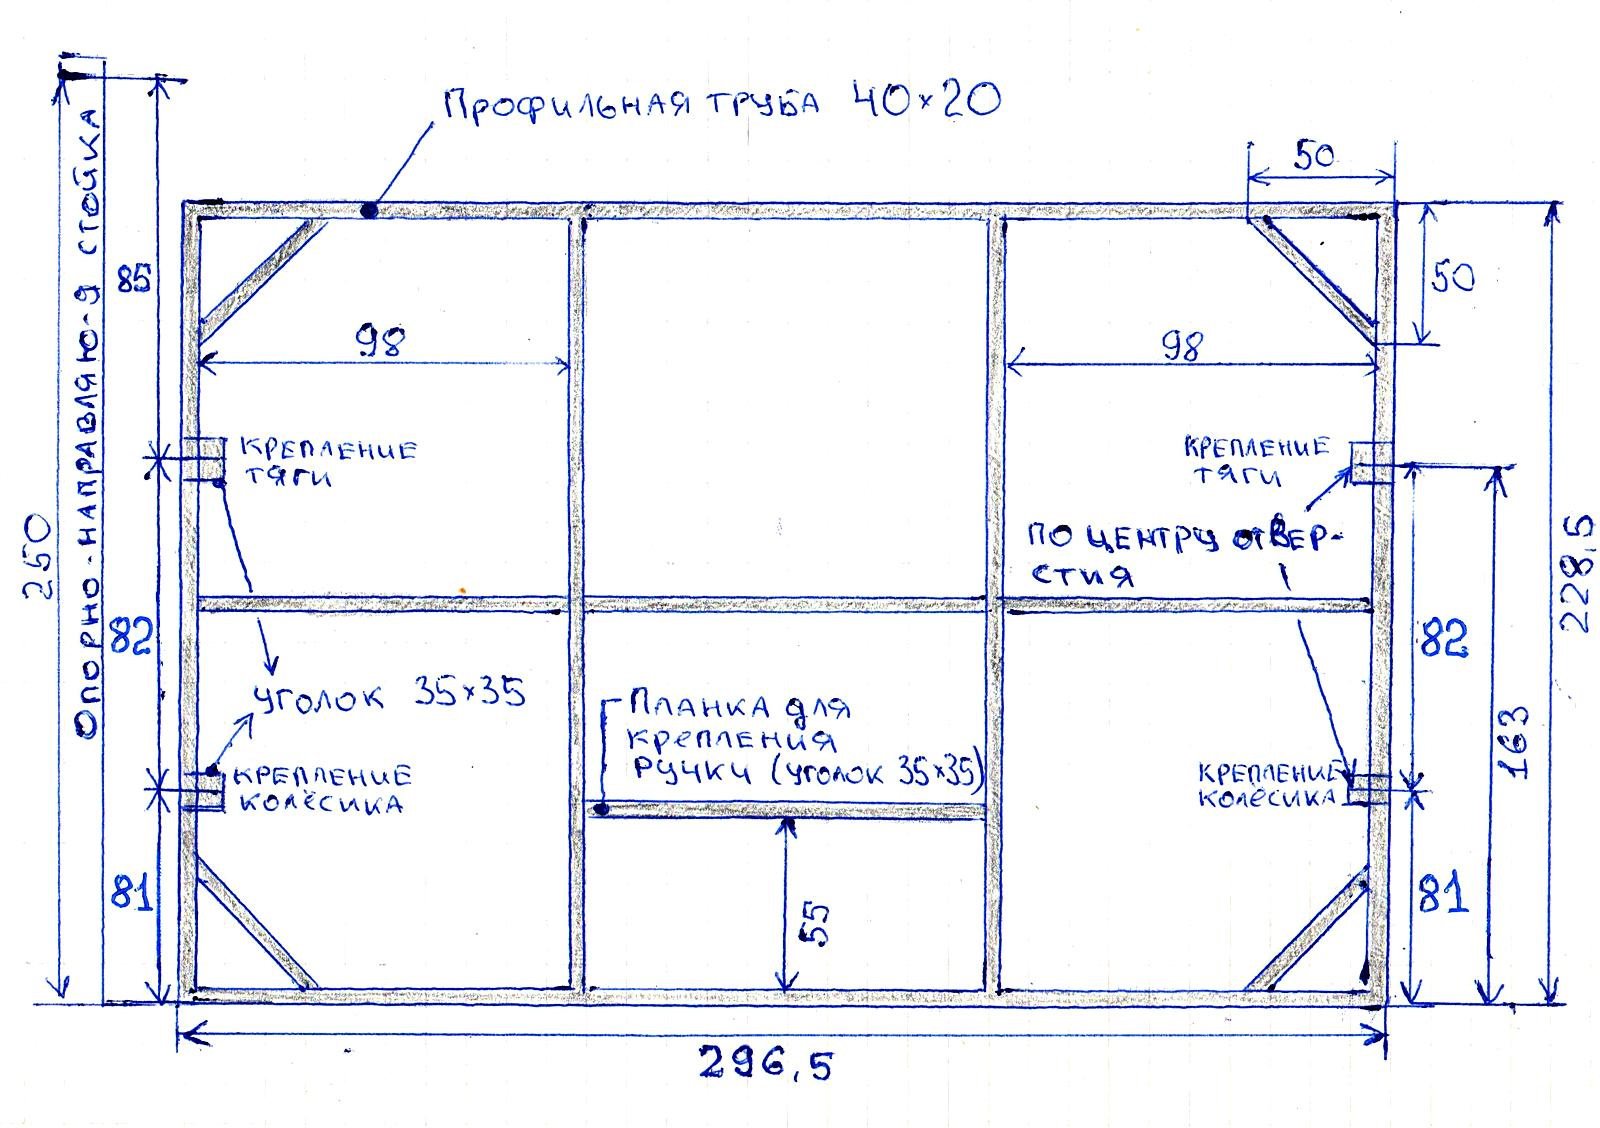 Профильная труба 40×20
50
50
85
98
98
Опорно-направляю-я стойка
250
228,5
Крепление
тяги
Крепление
тяги
По центру отвер-
стия
82
82
163
уголок 35×35
Планка для
крепления
ручки (уголок 35×35)
Крепление
колёсика
Крепление
колёсика
81
81
55
296,5